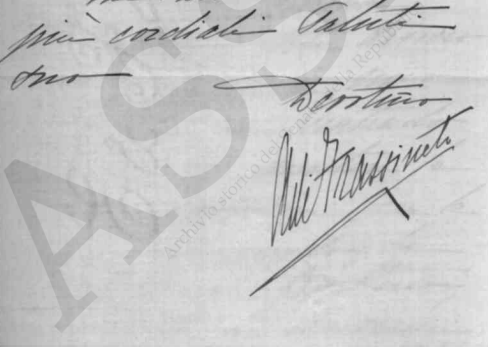 più cordiali saluti
suo
Devotmo
A di Frassineto
ASS
Archivio storico del Senato della Repubblica